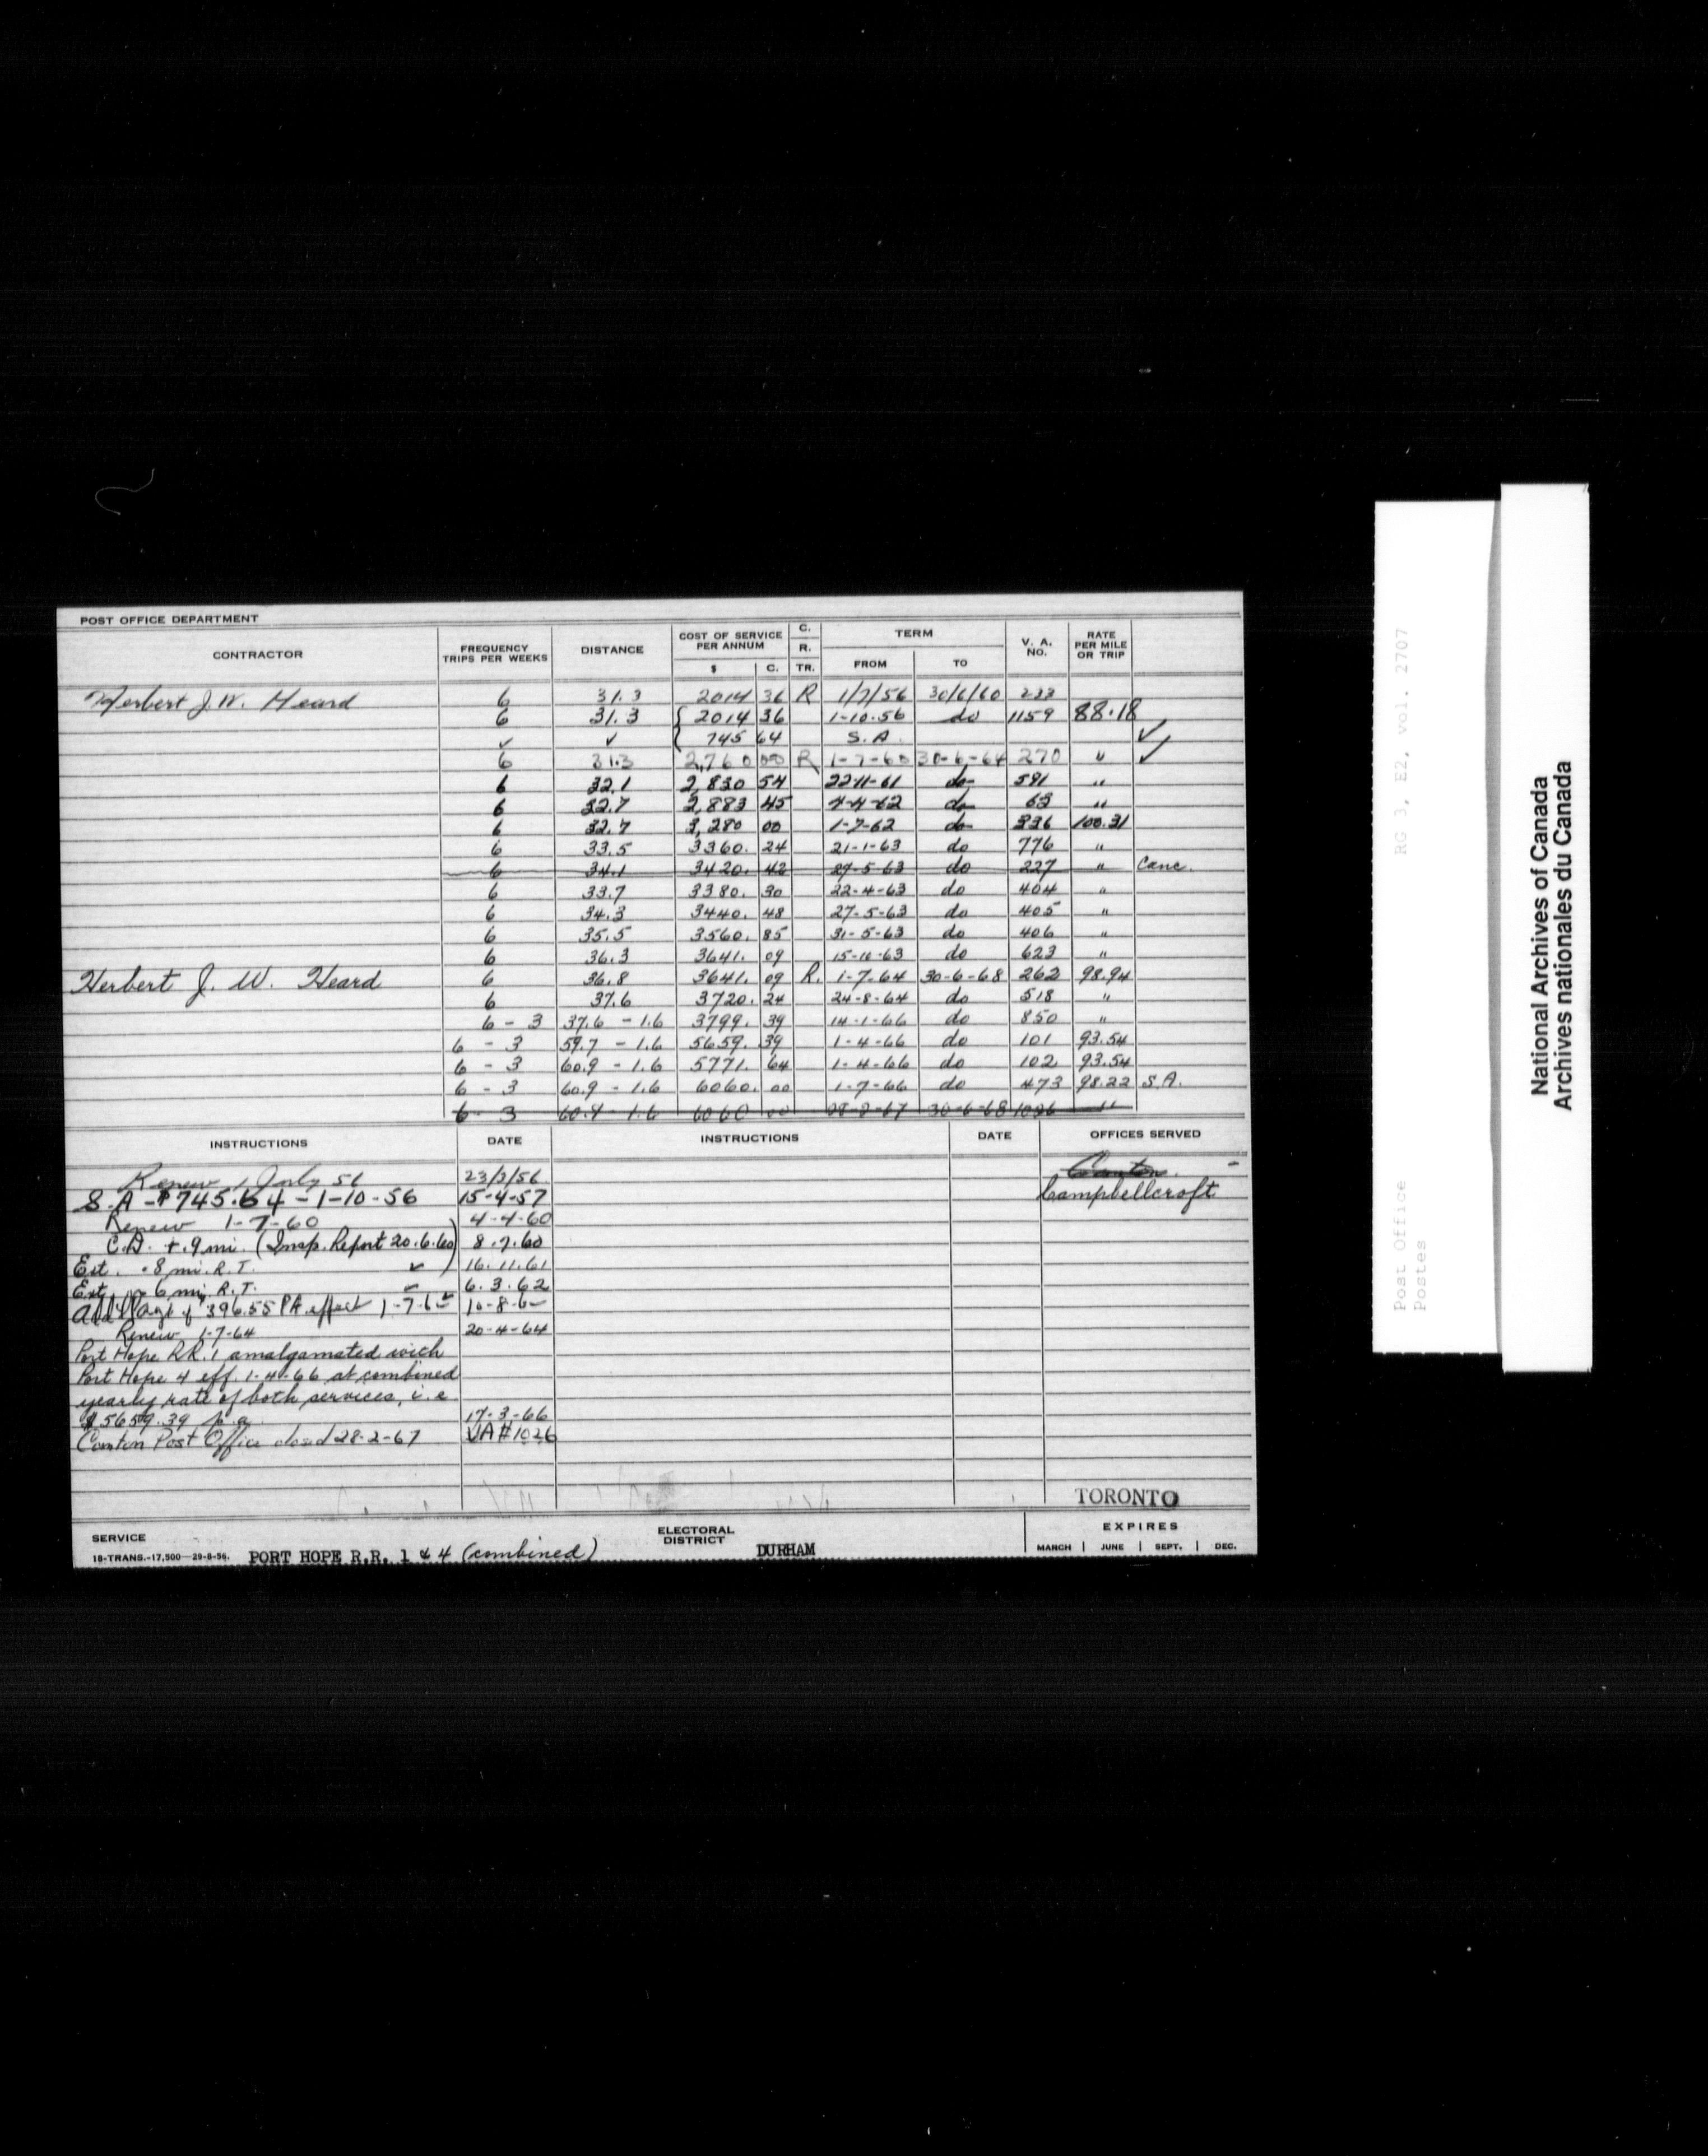 POST OFFICE DEPARTMENT
CONTRACTOR FREQUENCY TRIPS PER WEEKS DISTANCE COST OF SERVICE PER ANNUM $ C. C. R. TR. TERM FROM TO V. A. NO. RATE PER MILE OR TRIP
Herbert J. W. Heard 6 31.3 2014 36 R 1/7/56 30/6/60 233
6 31.3 { 2014 36 1-10-56 do 1159 88.18
✓ ✓ { 745 64 S.A. ✓
6 31.3 2,760 00 R 1-7-60 30-6-64 270 " ✓
6 32.1 2,830 54 22-11-61 do 591 "
6 32.7 2,883 45 4-4-62 do 63 "
6 32.7 3,280 00 1-7-62 do 336 100.31
6 33.5 3360. 24 21-1-63 do 776 "
6 34.1 3420. 42 27-5-63 do 227 " Canc.
6 33.7 3380. 30 22-4-63 do 404 "
6 34.3 3440. 48 27-5-63 do 405 "
6 35.5 3560. 85 31-5-63 do 406 "
6 36.3 3641. 09 15-10-63 do 623 "
Herbert J. W. Heard 6 36.8 3641. 09 R. 1-7-64 30-6-68 262 98.94
6 37.6 3720. 24 24-8-64 do 518 "
6 - 3 37.6 - 1.6 3799. 39 14-1-66 do 850 "
6 - 3 59.7 - 1.6 5659. 39 1-4-66 do 101 93.54
6 - 3 60.9 - 1.6 5771. 64 1-4-66 do 102 93.54
6 - 3 60.9 - 1.6 6060. 00 1-7-66 do 473 98.22 S.A.
6 - 3 60.9 - 1.6 6060 00 28-2-67 30-6-68 1026 "
INSTRUCTIONS DATE INSTRUCTIONS DATE OFFICES SERVED
Renew 1 July 56 23/3/56 Canton
S.A - $745.64 - 1-10-56 15-4-57 Campbellcroft
Renew 1-7-60 4-4-60
C.D. +.9 mi. (Insp. Report 20.6.60) 8.7.60
Ext. .8 mi. R.T. ✓ 16.11.61
Ext. .6 mi. R.T. ✓ 6.3.62
Add'l Payt of 396.55 PA effect 1-7-62 10-8-62
Renew 1-7-64 20-4-64
Port Hope RR.1 amalgamated with
Port Hope 4 eff. 1-4-66 at combined
yearly rate of both services, i.e
$5659.39 p.a. 17-3-66
Canton Post Office closed 28-2-67 VA#1026
TORONTO
SERVICE ELECTORAL DISTRICT EXPIRES
18-TRANS.-17,500—29-8-56. PORT HOPE R.R. 1 & 4 (combined) DURHAM MARCH | JUNE | SEPT. | DEC.
RG 3, E2, vol. 2707
Post Office
Postes
National Archives of Canada
Archives nationales du Canada